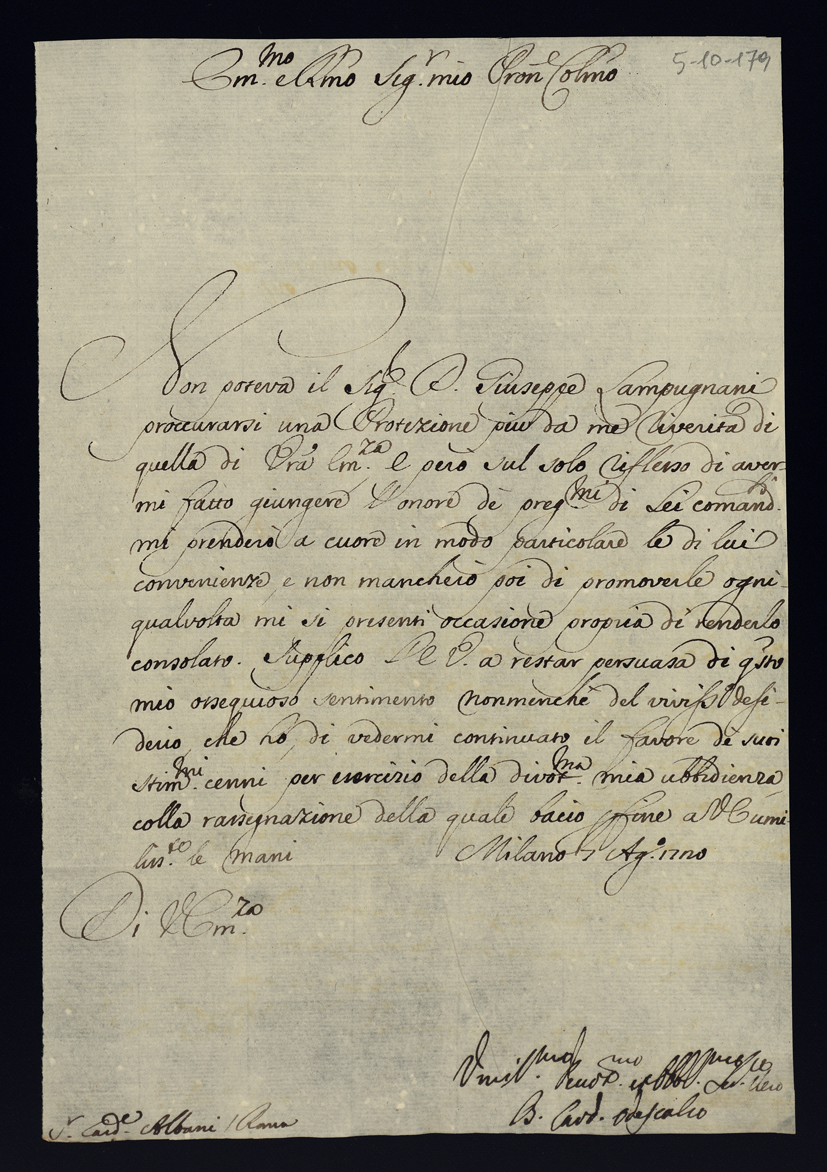 5-10-179
Em.mo e Rmo Sig.r mio Pron.e Colmo
Non poteva il Sig.r D. Giuseppe Lampugnani
proccurarsi una Protezione più da me riverita di
quella di Vra Em.za e però sul solo riflesso di aver-
mi fatto giungere l'onore de preg.mi di Lei comand.ti
mi prenderò a cuore in modo particolare le di lui
convenienze, e non mancherò poi di promoverle ogni
qualvolta mi si presenti occasione propria di renderlo
consolato. Supplico l'E V. a restar persuasa di qsto
mio ossequioso sentimento nonmenchè del viviss.o desi-
derio, che hò, di vedermi continuato il favore de suoi
stim.mi cenni per esercizio della divot.ma mia ubbidienza
colla rassegnazione della quale bacio p fine a VE umi-
liss.te le mani Milano 7 Ag.o 1720
Di V Em.za
Umil.mo Devot.mo et Obbl.mo
B. Card. Odescalco
S.r Card.e Albani / Roma